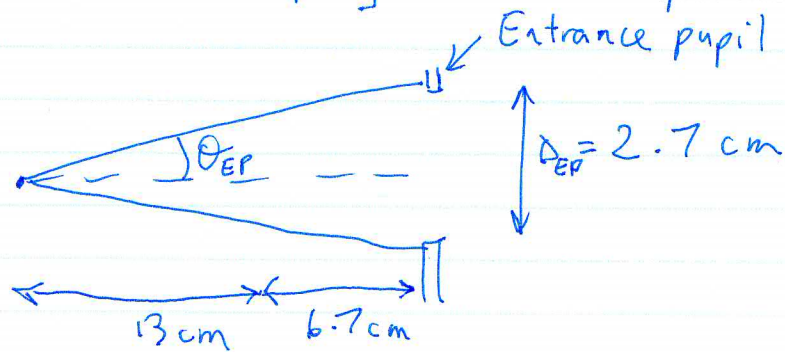 Entrance pupil
θ_EP
D_EP = 2.7 cm
13 cm
6.7 cm